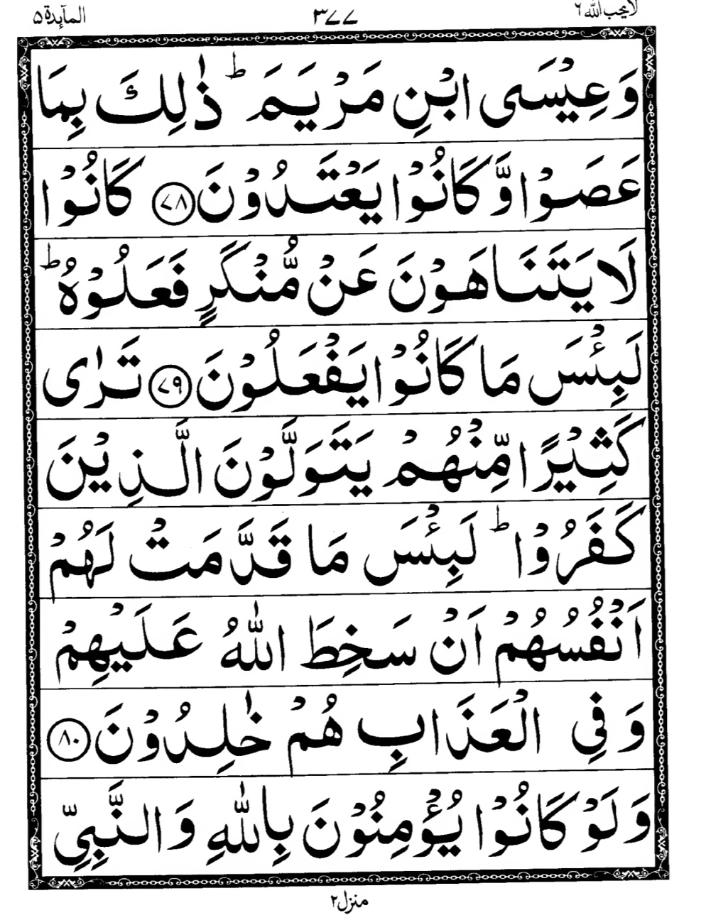 لایحب الله ٦
٣٧٧
المآىِٕدة ٥
وَعِيْسَى ابْنِ مَرْيَمَ ؕ ذٰلِكَ بِمَا
عَصَوْا وَّكَانُوْا يَعْتَدُوْنَ ﴿٧٨﴾ كَانُوْا
لَا يَتَنَاهَوْنَ عَنْ مُّنْكَرٍ فَعَلُوْهُ ؕ
لَبِئْسَ مَا كَانُوْا يَفْعَلُوْنَ ﴿٧٩﴾ تَرٰى
كَثِيْرًا مِّنْهُمْ يَتَوَلَّوْنَ الَّذِيْنَ
كَفَرُوْا ؕ لَبِئْسَ مَا قَدَّمَتْ لَهُمْ
اَنْفُسُهُمْ اَنْ سَخِطَ اللّٰهُ عَلَيْهِمْ
وَفِي الْعَذَابِ هُمْ خٰلِدُوْنَ ﴿٨٠﴾
وَلَوْ كَانُوْا يُؤْمِنُوْنَ بِاللّٰهِ وَالنَّبِيِّ
منزل ٢